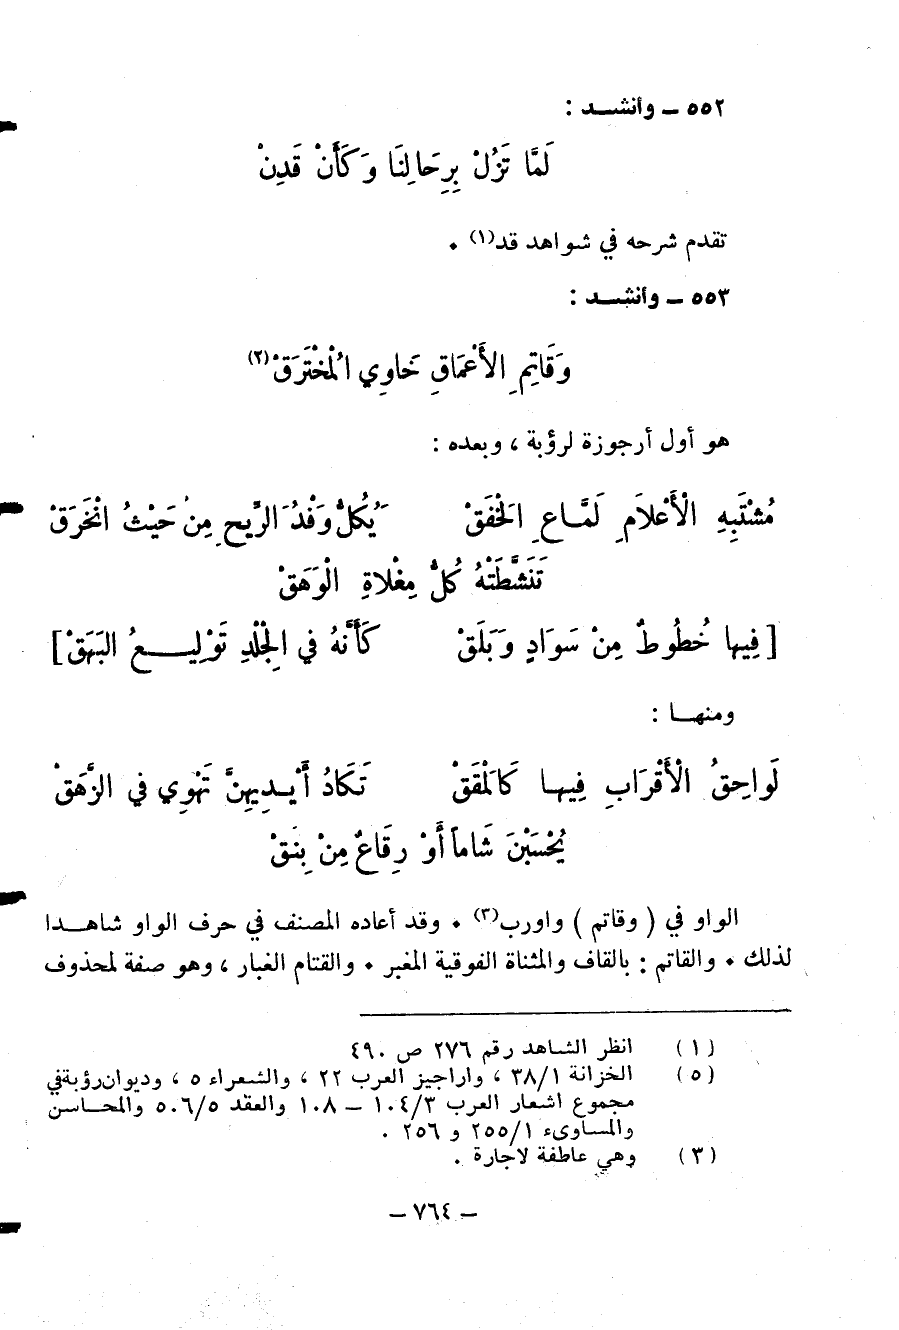 ٥٥٢ ــ وأنشــد :
لَمَّا تَزُلْ بِرِحَالِنَا وَكَأَنْ قَدِنْ
تقدم شرحه في شواهد قد(١) ٠
٥٥٣ ــ وأنشــد :
وَقَاتِمِ الأَعْمَاقِ خَاوِي المُخْتَرَقْ(٢)
هو أول أرجوزة لرؤبة ، وبعده :
مُشْتَبِهِ الْأَعْلَامِ لَمَّـاعِ الخَفَقْ يُكِلُّ وَفْدُ الرِّيحِ مِنْ حَيْثُ انْخَرَقْ
تَنَشَّطَتْهُ كُلُّ مِغْلاةِ الْوَهَقْ
[ فِيها خُطُوطٌ مِنْ سَوَادٍ وَبَلَقْ كَأَنَّهُ في الجِلْدِ تَوْلِيــعُ البَهَقْ ]
ومنهـا :
لَواحِقُ الْأَقْرَابِ فِيهـا كَالمَقَقْ تَكَادُ أَيْـدِيهِنَّ تَهْوِي في الزَّهَقْ
يُحْسَبْنَ شَاماً أَوْ رِقَاعٌ مِنْ بِنَقْ
الواو في ( وقاتم ) واورب(٣) ٠ وقد أعاده المصنف في حرف الواو شاهــدا
لذلك ٠ والقاتم : بالقاف والمثناة الفوقية المغبر ٠ والقتام الغبار ، وهو صفة لمحذوف
(١) انظر الشاهد رقم ٢٧٦ ص ٤٩٠
(٥) الخزانة ٣٨/١ ، واراجيز العرب ٢٢ ، والشعراء ٥ ، وديوان رؤبة في
مجموع اشعار العرب ١٠٤/٣ ــ ١٠٨ والعقد ٥٠٦/٥ والمحـاسن
والمساوىء ٢٥٥/١ و ٢٥٦ .
(٣) وهي عاطفة لاجارة .
ــ ٧٦٤ ــ